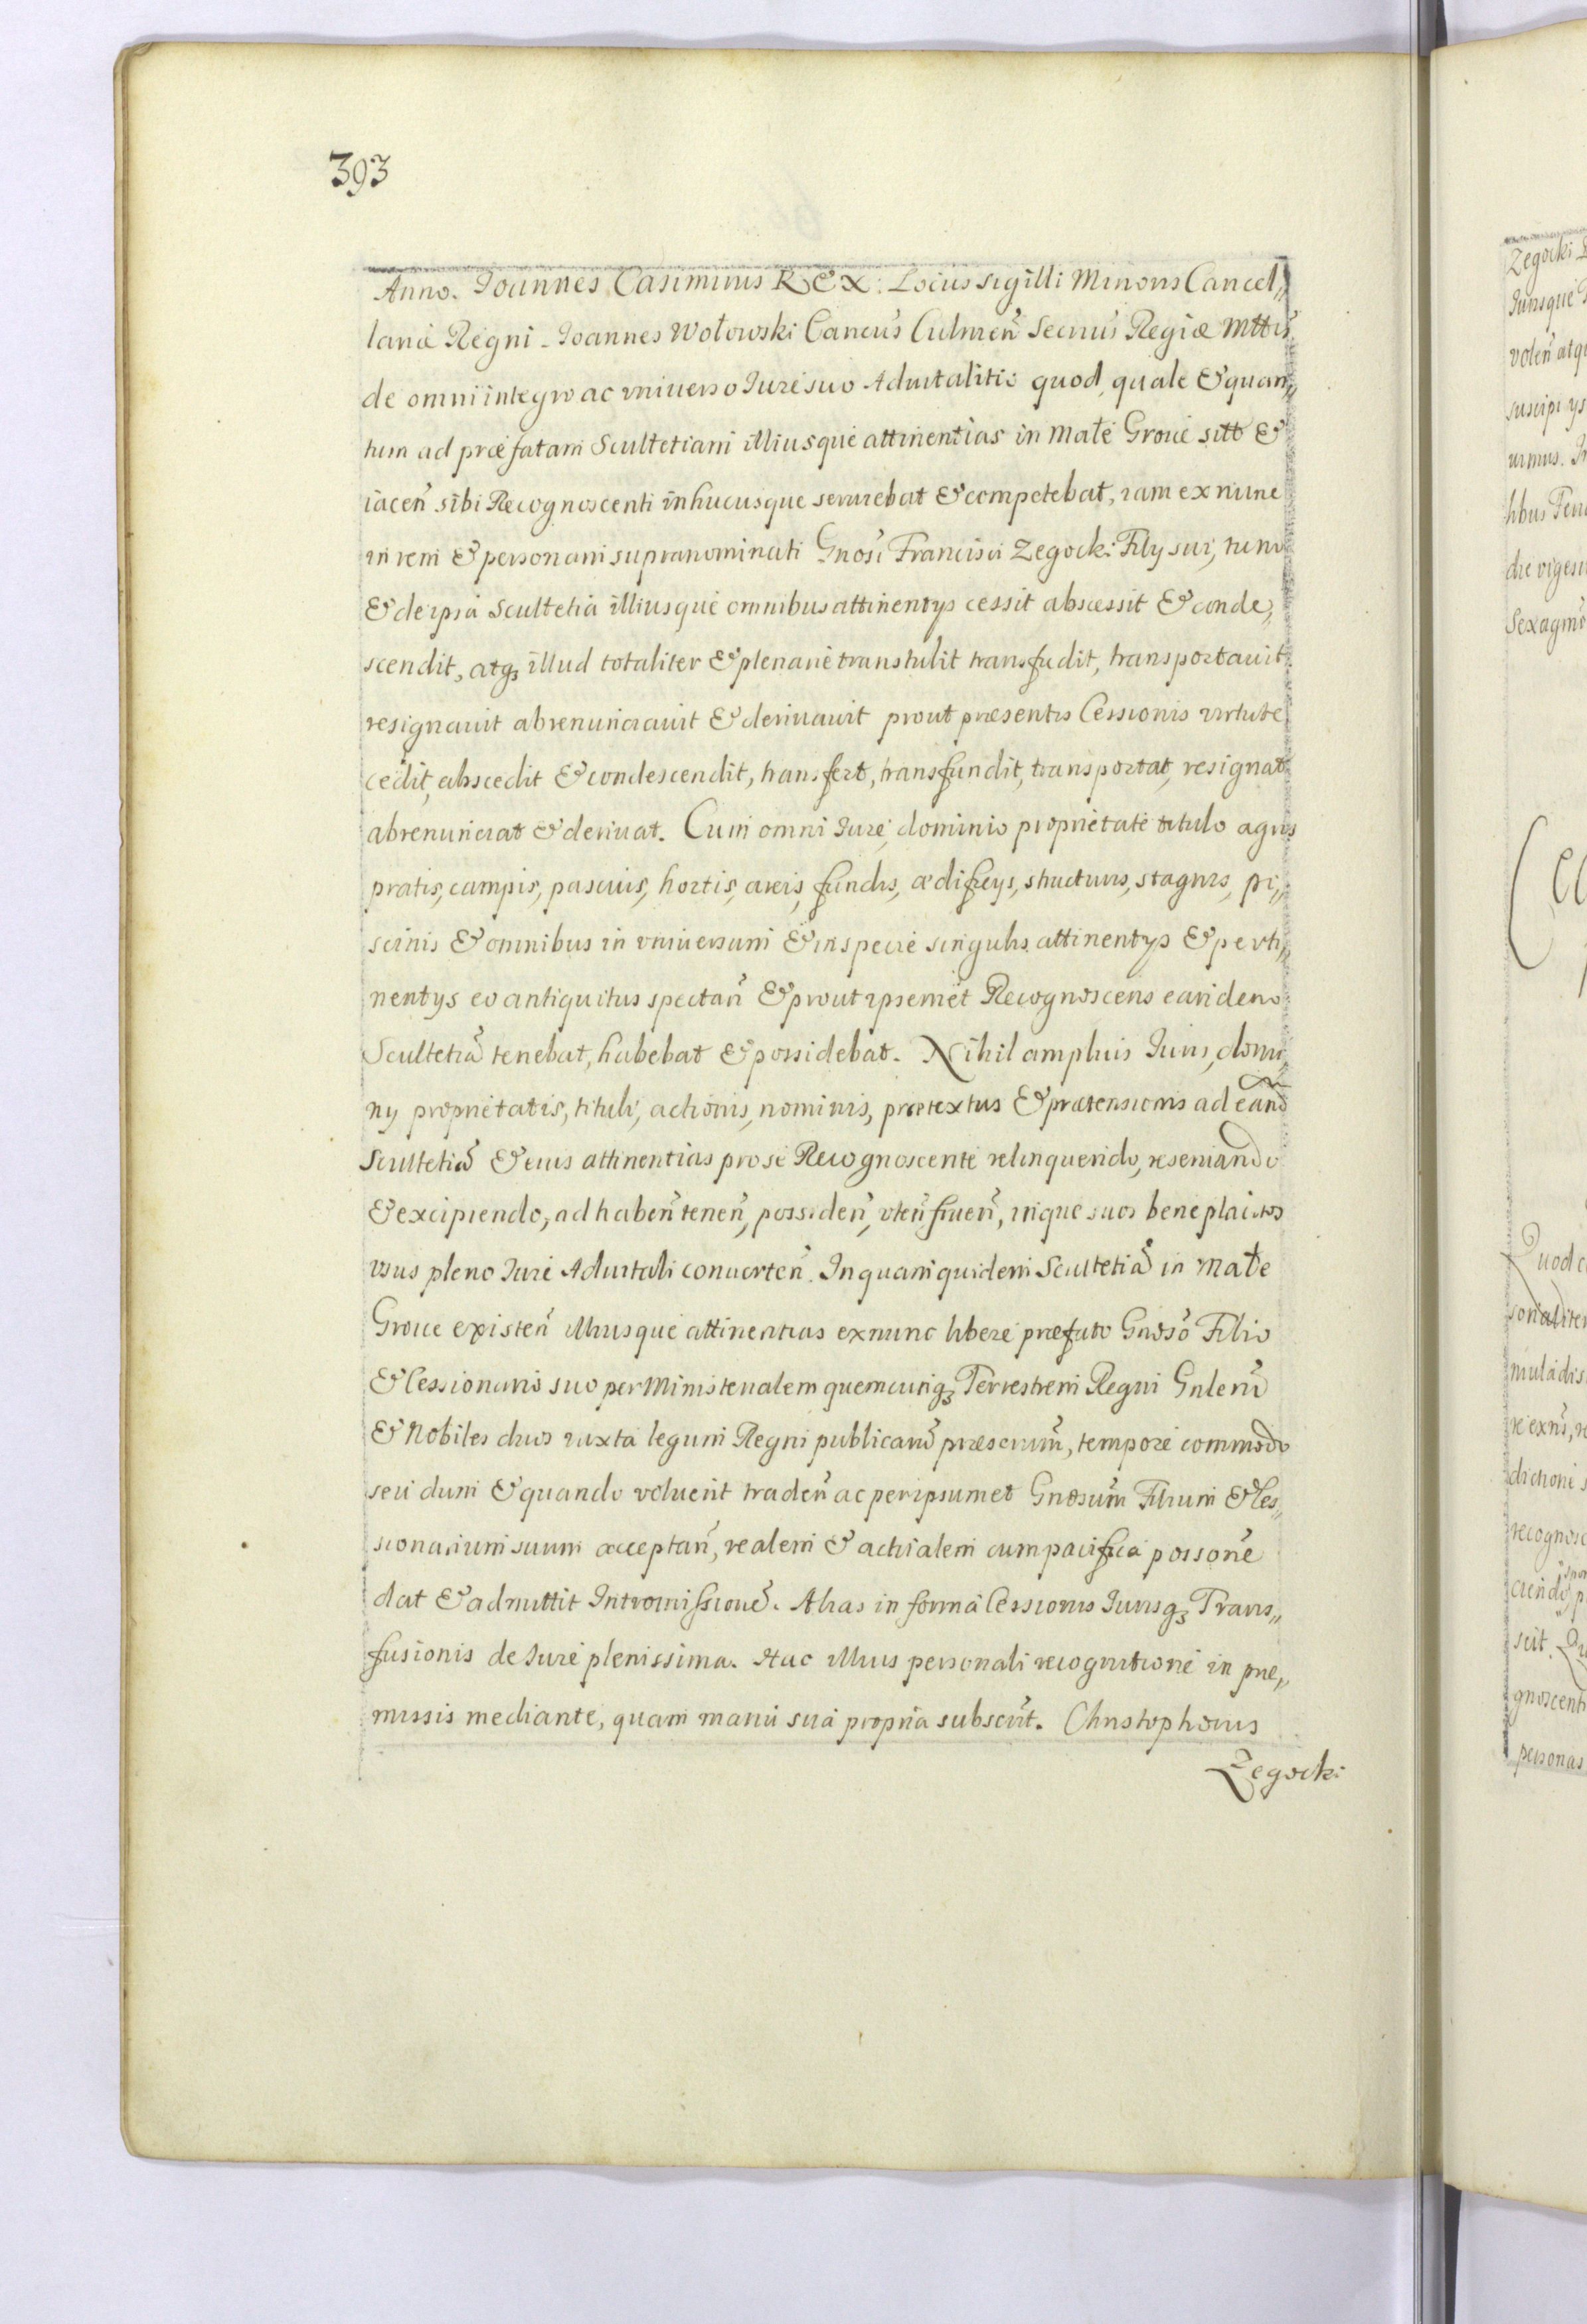 393
Anno. Joannes Casimirus REX. Locus sigilli Minoris Cancel„
lariæ Regni. Joannes Wołowski Cancūs Culmeñ Secrius Regiæ Mttis
de omni integro ac vniuerso Jure suo Aduitalitio quod, quale & quan„
tum ad præfatam Scultetiam illiusque attinentias in Małe Groue sitt &
iaceñ sibi Recognoscenti inhucusque seruiebat & competebat, iam ex nunc
in rem & personam supranominati Gnosi Francisci Zegocki Filij sui, tum
& de ipsa Scultetia illiusque omnibus attinentijs cessit abscessit & conde„
scendit, atq3 illud totaliter & plenarie transtulit transfudit, transportauit
resignauit abrenunciauit & deriuauit prout præsentis Cessionis virtute
cedit, abscedit & condescendit, transfert, transfundit, transportat, resignat
abrenunciat & deriuat. Cum omni Jure, dominio proprietate titulo agris
pratis, campis, pascuis, hortis, areis, fundis, ædificijs, structuris, stagnis, pi„
scinis & omnibus in vniuersum & in specie singulis attinentijs & perti„
nentijs eo antiquitus spectañ & prout ipsemet Recognoscens eandem
Scultetiã tenebat, habebat & possidebat. Nihil amplius Juris, domi„
nij proprietatis, tituli, actionis, nominis, prætextus & prætensionis ad eand
Scultetiã & eius attinentias pro se Recognoscente relinquendo, reseruando
& excipiendo, ad habeñ teneñ, possideñ, vteñ frueñ, inque suos beneplacitos
vsus pleno Jure Aduitali conuerteñ. In quam quidem Scultetiã in Małe
Groue existeñ illiusque attinentias ex nunc libere præfato Gnoso Filio
& Cessionario suo per Ministerialem quemcunq3 Terrestrem Regni Gnlem
& Nobiles duos iuxta legum Regni publicarũ præscriptũ, tempore commodo
seu dum & quando voluerit tradeñ ac per ipsummet Gnosum Filium & Ces„
sionarium suum acceptañ, realem & actualem cum pacifica possone
dat & admittit Intromissionẽ. Alias in forma Cessionis Jurisq3 Trans„
fusionis de Jure plenissima. Hac illius personali recognitione in præ„
missis mediante, quam manu sua propria subscrit. Christophorus
Zegocki